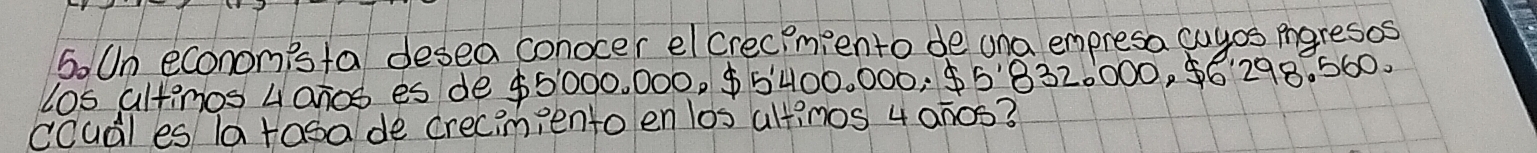 5. Un economista desea conocer el crecimiento de una empresa cuyos ingresos
los ultimos 4 años es de $5'000.000, $5'400.000, $5'832.000, $6'298.560.
¿Cuál es la tasa de crecimiento en los ultimos 4 años?